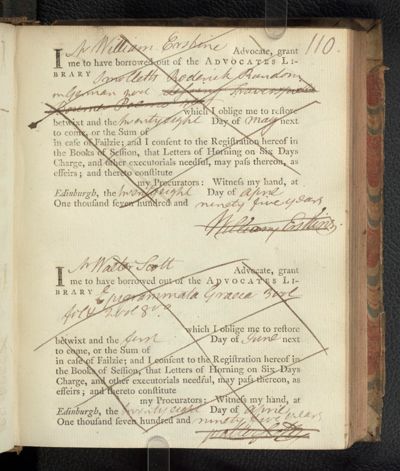 110.
I Mr William Erskine Advocate, grant
me to have borrowed out of the ADVOCATES LI-
BRARY Smolletts Roderick Random
in German
which I oblige me to restore
betwixt and the twentyeight Day of May next
to come, or the Sum of
in case of Failzie; and I consent to the Registration hereof in
the Books of Session, that Letters of Horning on Six Days
Charge, and other executorials needful, may pass thereon, as
effeirs; and thereto constitute
my Procurators: Witness my hand, at
Edinburgh, the twentyeight Day of April
One thousand seven hundred and ninety five years
William Erskine
I Mr Walter Scott Advocate, grant
me to have borrowed out of the ADVOCATES LI-
BRARY Epigrammata Graeca
which I oblige me to restore
betwixt and the first Day of June next
to come, or the Sum of
in case of Failzie; and I consent to the Registration hereof in
the Books of Session, that Letters of Horning on Six Days
Charge, and other executorials needful, may pass thereon, as
effeirs; and thereto constitute
my Procurators: Witness my hand, at
Edinburgh, the twentyeight Day of April
One thousand seven hundred and ninety five years